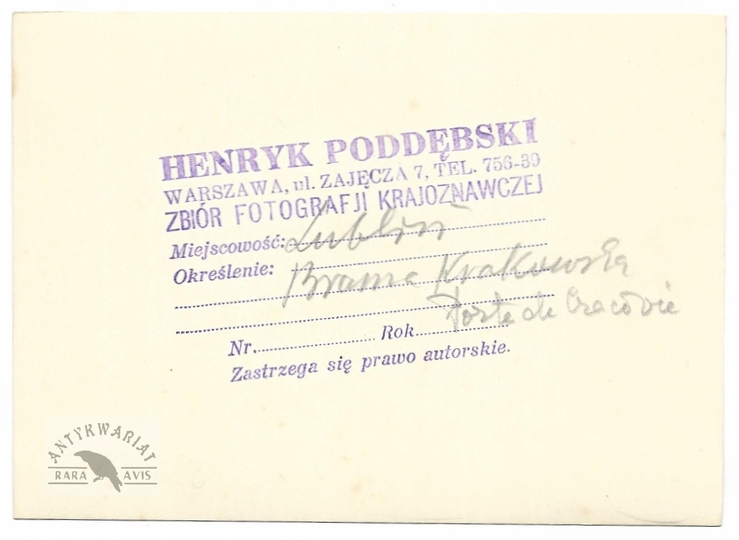 HENRYK PODDĘBSKI
WARSZAWA, ul. ZAJĘCZA 7, TEL. 756-39
ZBIÓR FOTOGRAFJI KRAJOZNAWCZEJ
Miejscowość: Lublin
Określenie:
Brama Krakowska
Porte de Cracovie
Nr. Rok
Zastrzega się prawo autorskie.
ANTYKWARIAT
RARA AVIS